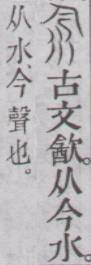 古文㱃。从今水。
从水、今聲也。